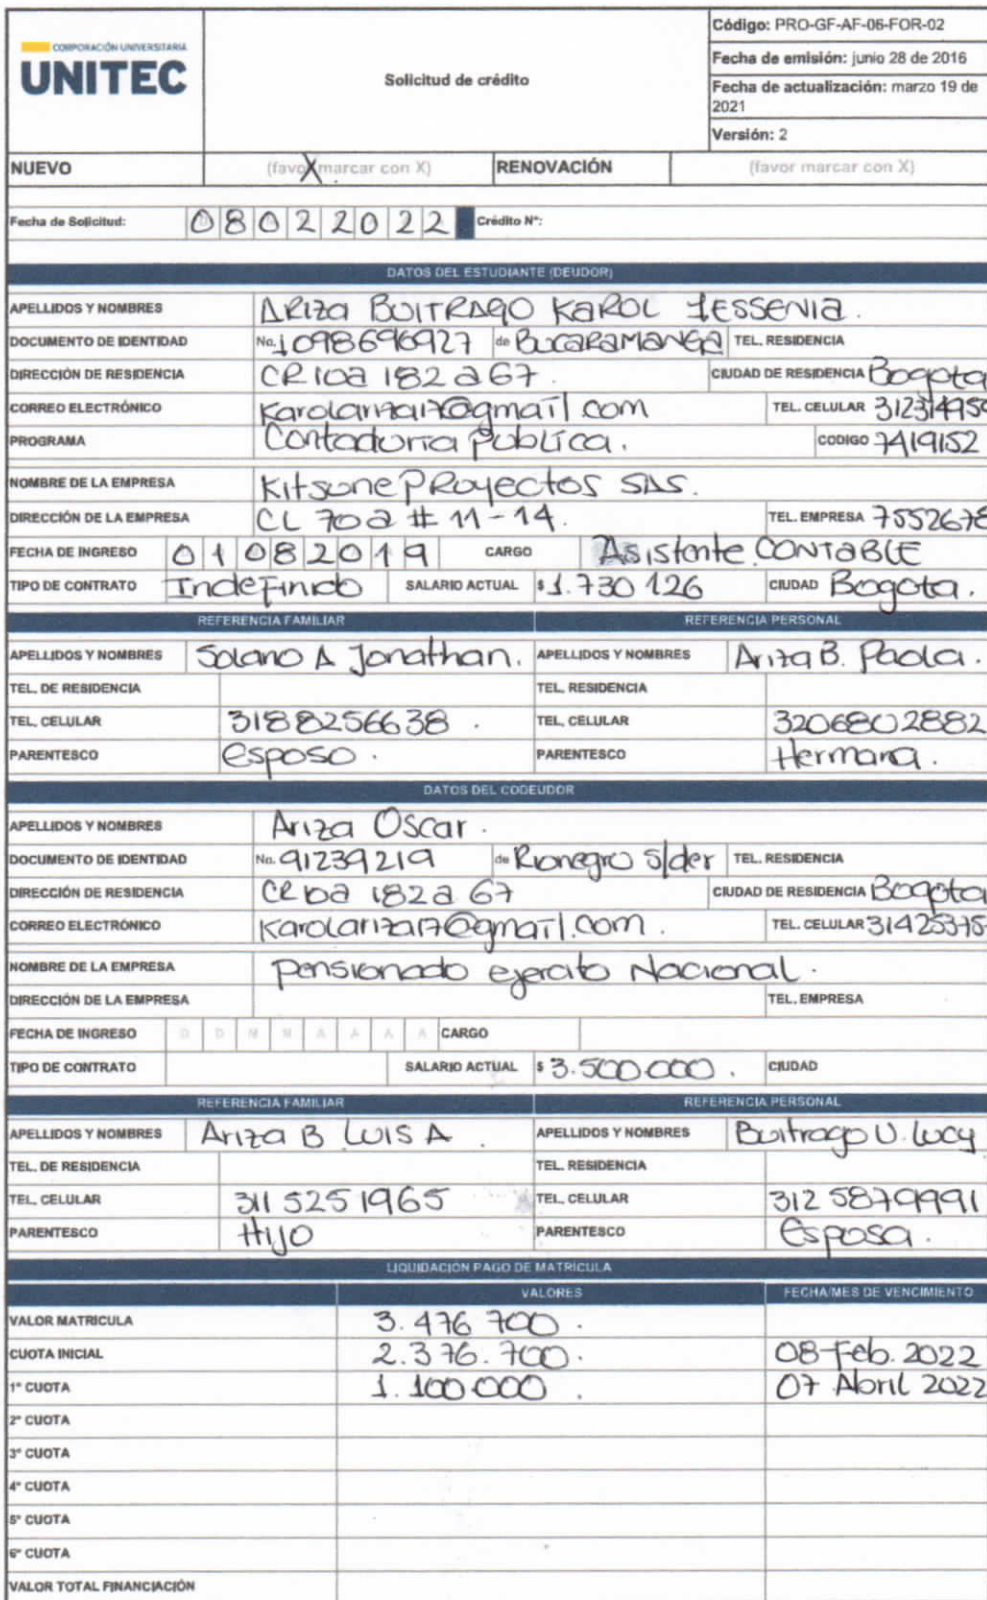 CORPORACIÓN UNIVERSITARIA
UNITEC
Solicitud de crédito
Código: PRO-GF-AF-06-FOR-02
Fecha de emisión: junio 28 de 2016
Fecha de actualización: marzo 19 de 2021
Versión: 2
NUEVO (favor marcar con X) X RENOVACIÓN (favor marcar con X)
Fecha de Solicitud: 08022022 Crédito N°:
DATOS DEL ESTUDIANTE (DEUDOR)
APELLIDOS Y NOMBRES ARIZA BUITRAGO KAROL YESSENIA.
DOCUMENTO DE IDENTIDAD No. 1098696927 de BUCARAMANGA TEL. RESIDENCIA
DIRECCIÓN DE RESIDENCIA CR 10a 182 a 67. CIUDAD DE RESIDENCIA Bogota
CORREO ELECTRÓNICO Karolariza17@gmail.com TEL. CELULAR 312314950
PROGRAMA Contaduria Publica. CODIGO 7419152
NOMBRE DE LA EMPRESA Kitsune PRoyectos SAS.
DIRECCIÓN DE LA EMPRESA CL 70a # 11-14. TEL. EMPRESA 7552678
FECHA DE INGRESO 01082019 CARGO Asistente CONTABLE
TIPO DE CONTRATO Indefinido SALARIO ACTUAL $ 1.730 126 CIUDAD Bogota.
REFERENCIA FAMILIAR REFERENCIA PERSONAL
APELLIDOS Y NOMBRES Solano A Jonathan. APELLIDOS Y NOMBRES Ariza B. Paola.
TEL. DE RESIDENCIA TEL. RESIDENCIA
TEL. CELULAR 3188256638. TEL. CELULAR 3206802882
PARENTESCO Esposo. PARENTESCO Hermana.
DATOS DEL CODEUDOR
APELLIDOS Y NOMBRES Ariza Oscar.
DOCUMENTO DE IDENTIDAD No. 91239219 de Rionegro S/der TEL. RESIDENCIA
DIRECCIÓN DE RESIDENCIA CR 10a 182 a 67 CIUDAD DE RESIDENCIA Bogota
CORREO ELECTRÓNICO Karolariza17@gmail.com. TEL. CELULAR 31425375
NOMBRE DE LA EMPRESA Pensionado ejercito Nacional.
DIRECCIÓN DE LA EMPRESA TEL. EMPRESA
FECHA DE INGRESO D D M M A A A A CARGO
TIPO DE CONTRATO SALARIO ACTUAL $ 3.500.000. CIUDAD
REFERENCIA FAMILIAR REFERENCIA PERSONAL
APELLIDOS Y NOMBRES Ariza B LUIS A. APELLIDOS Y NOMBRES Buitrago U. Lucy
TEL. DE RESIDENCIA TEL. RESIDENCIA
TEL. CELULAR 311 5251965 TEL. CELULAR 312 5879991
PARENTESCO Hijo PARENTESCO Esposa.
LIQUIDACIÓN PAGO DE MATRÍCULA
VALORES FECHA/MES DE VENCIMIENTO
VALOR MATRICULA 3.476 700.
CUOTA INICIAL 2.376.700. 08-Feb. 2022
1° CUOTA 1.100 000. 07 Abril 2022
2° CUOTA
3° CUOTA
4° CUOTA
5° CUOTA
6° CUOTA
VALOR TOTAL FINANCIACIÓN